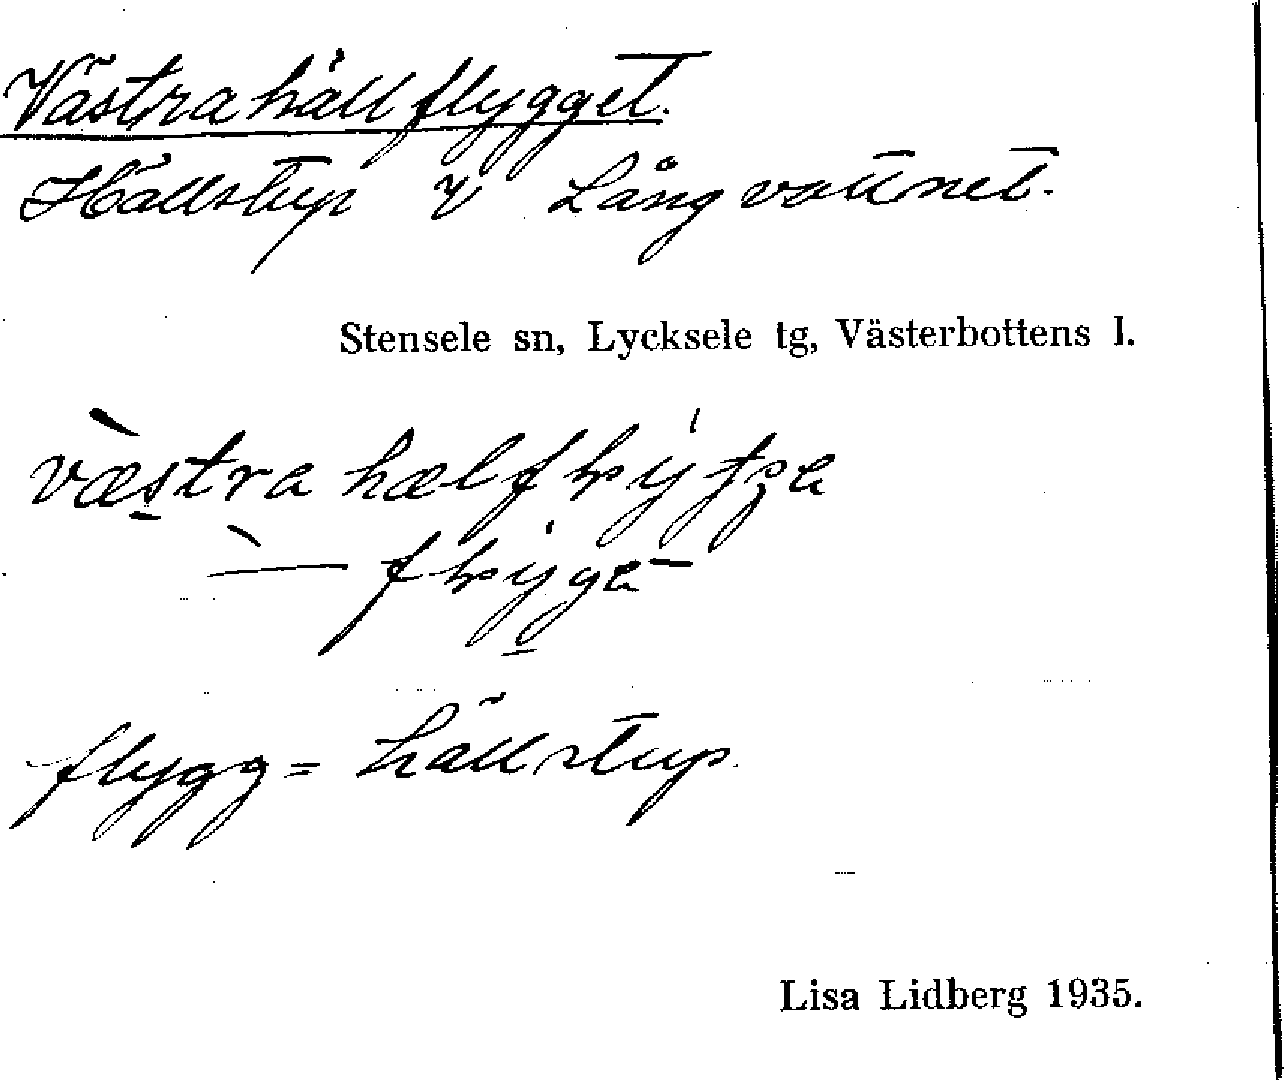 Västrahällflygget.
Hällstup V Långvattnet.
Stensele sn, Lycksele tg, Västerbottens l.
flygg = hällstup.
Lisa Lidberg 1935.